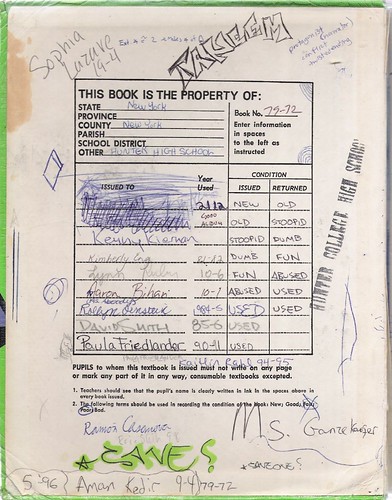 Sophia
Lazare
79-4
TAYEEM
protagonist
conflict
THIS BOOK IS THE PROPERTY OF:
STATE New York
PROVINCE
COUNTY New York
PARISH
SCHOOL DISTRICT
OTHER HUNTER HIGH SCHOOL
Book No. 79-72
Enter information
in spaces
to the left as
instructed
ISSUED TO
Year
Used
CONDITION
ISSUED
RETURNED
2112 NEW OLD
GOOD
ALBUM
OLD STOOPID
Kenny Kiernan STOOPID DUMB
Kimberly 81-82 DUMB FUN
Lynn 10-6 FUN ABUSED
Aaron Bihari 10-1 ABUSED USED
1984-5 USED USED
DAVID SMITH 85-6 USED
Paula Friedlander 90-91 USED
94-95
HUNTER COLLEGE HIGH SCHOOL
PUPILS to whom this textbook is issued must not write on any page
or mark any part of it in any way, consumable textbooks excepted.
1. Teachers should see that the pupil's name is clearly written in ink in the spaces above in
every book issued.
2. The following terms should be used in recording the condition of the book: New; Good; Fair;
Poor; Bad.
Ramon Casanova
Ms. Ganzekaufer
SAVE?
SAVEONE?
5 '96
Aman Kedir 9-4 79-72